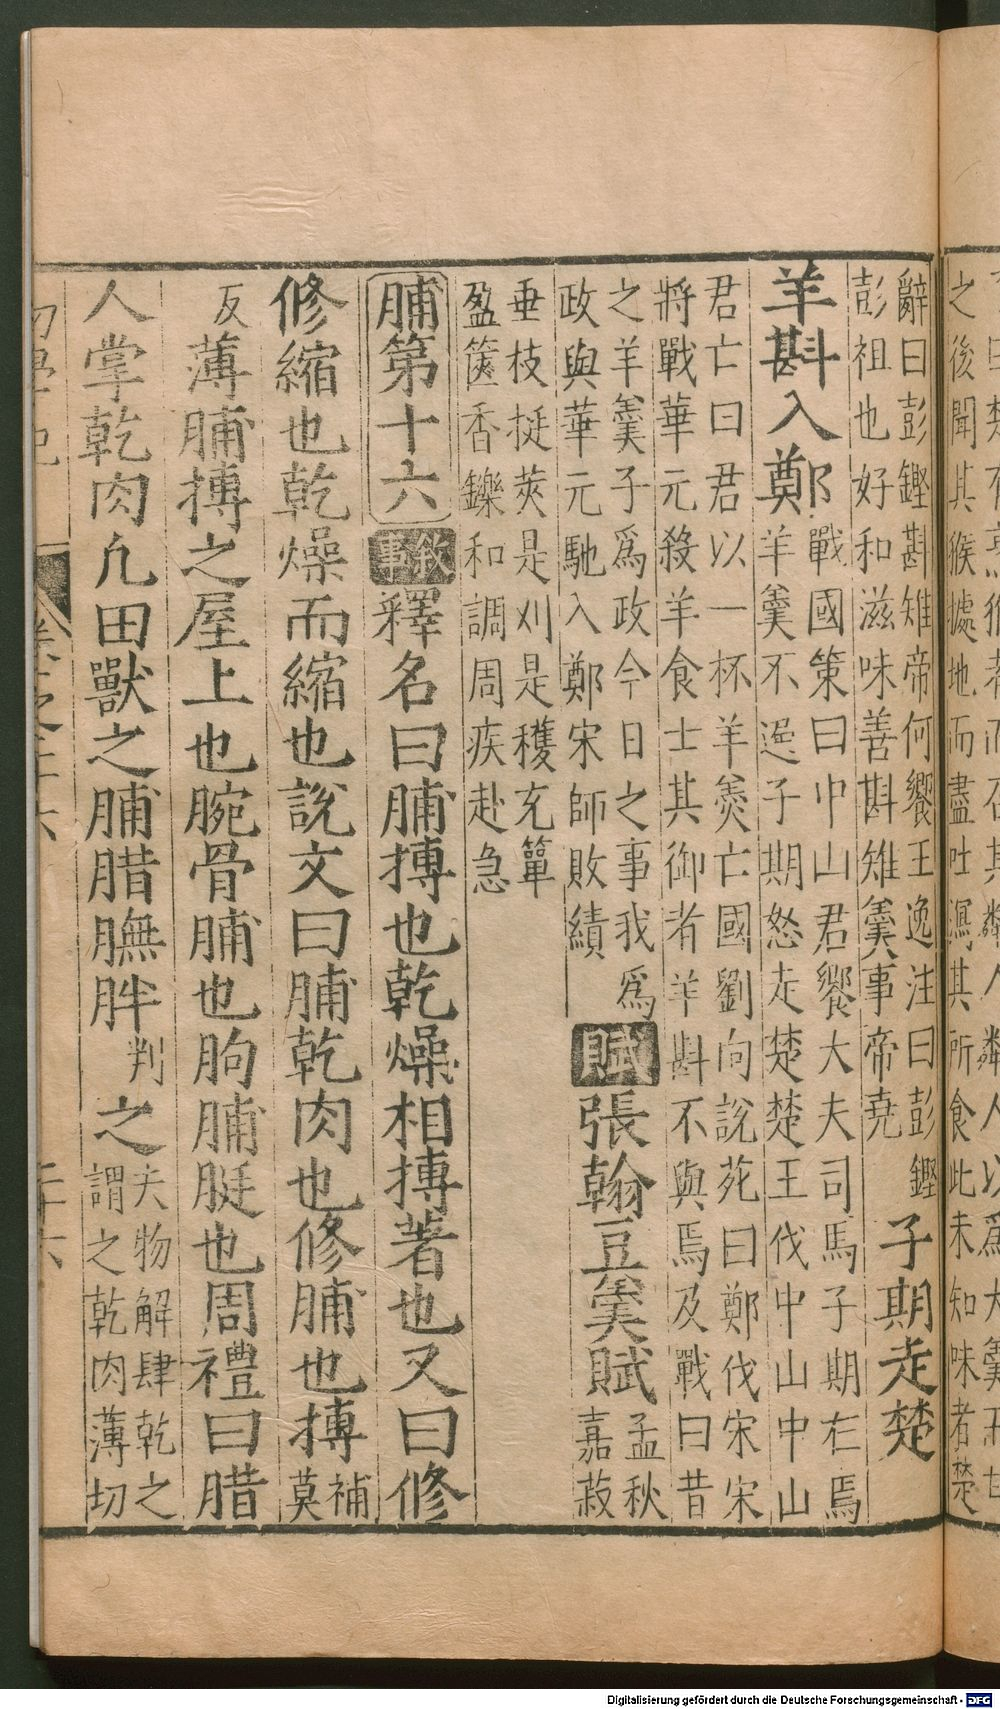 之後聞其猴據地而盡吐瀉其所食此未知味者楚
辭曰彭鏗斟雉帝何饗王逸注曰彭鏗
彭祖也好和滋味善斟雉羹事帝堯
子期走楚
戰國策曰中山君饗大夫司馬子期在焉
羊斟入鄭
羊羹不遍子期怒走楚楚王伐中山中山
君亡曰君以一杯羊羹亡國劉向說苑曰鄭伐宋宋
將戰華元殺羊食士其御者羊斟不與焉及戰曰昔
之羊羹子爲政今日之事我爲
政與華元馳入鄭宋師敗績
賦 張翰豆羹賦
孟秋
嘉菽
垂枝挺莢是刈是穫充簞
盈篋香鑠和調周疾赴急
脯第十六 敘事 釋名曰脯搏也乾燥相搏著也又曰修
修縮也乾燥而縮也說文曰脯乾肉也修脯也搏補莫
反薄脯搏之屋上也腕骨脯也朐脯脡也周禮曰腊
人掌乾肉凡田獸之脯腊膴胖判之
夫物解肆乾之
謂之乾肉薄切
Digitalisierung gefördert durch die Deutsche Forschungsgemeinschaft - DFG